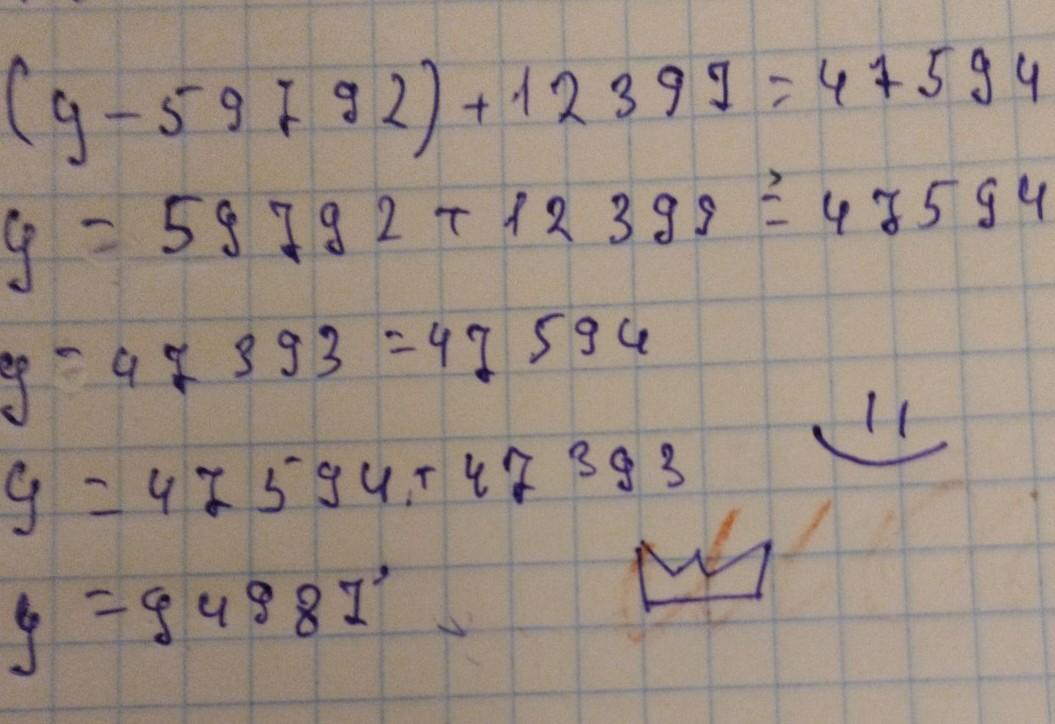 (y-59792)+12399=47594
y=59792+12399=47594
y=47393=47594
y=47594+47393
y=94987